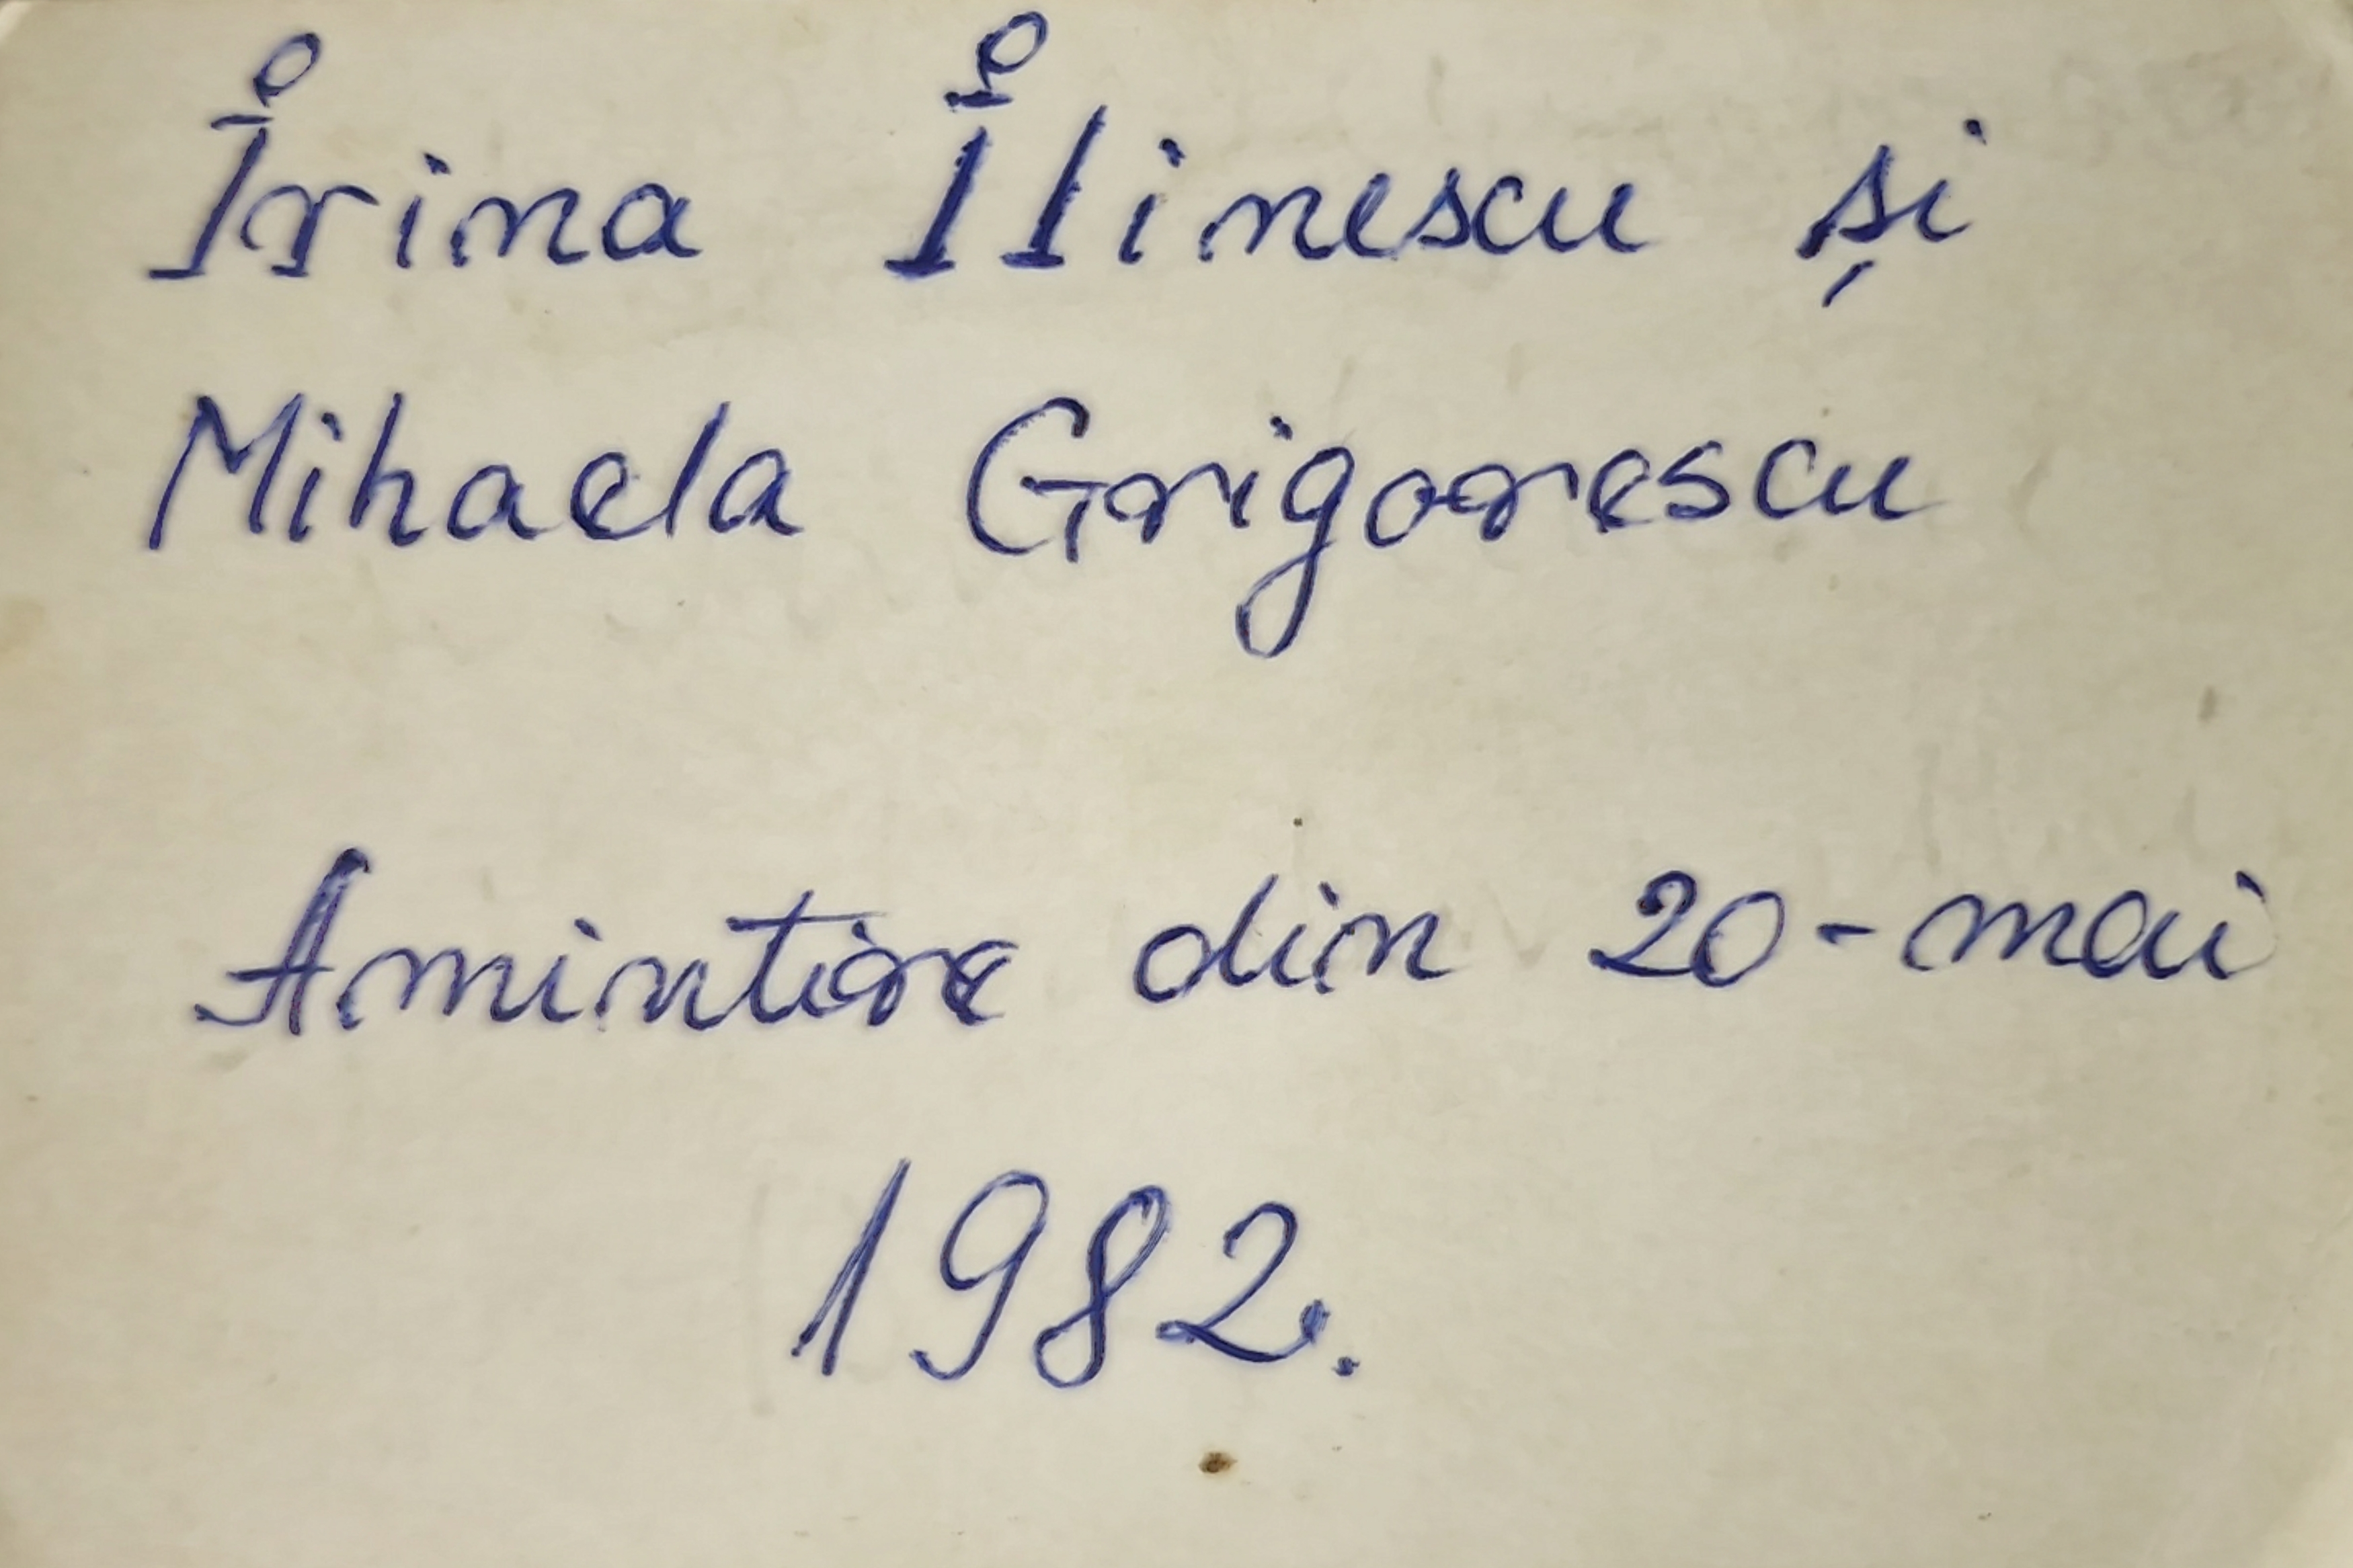 Irina Ilinescu și
Mihaela Grigorescu
Amintire din 20-mai
1982.